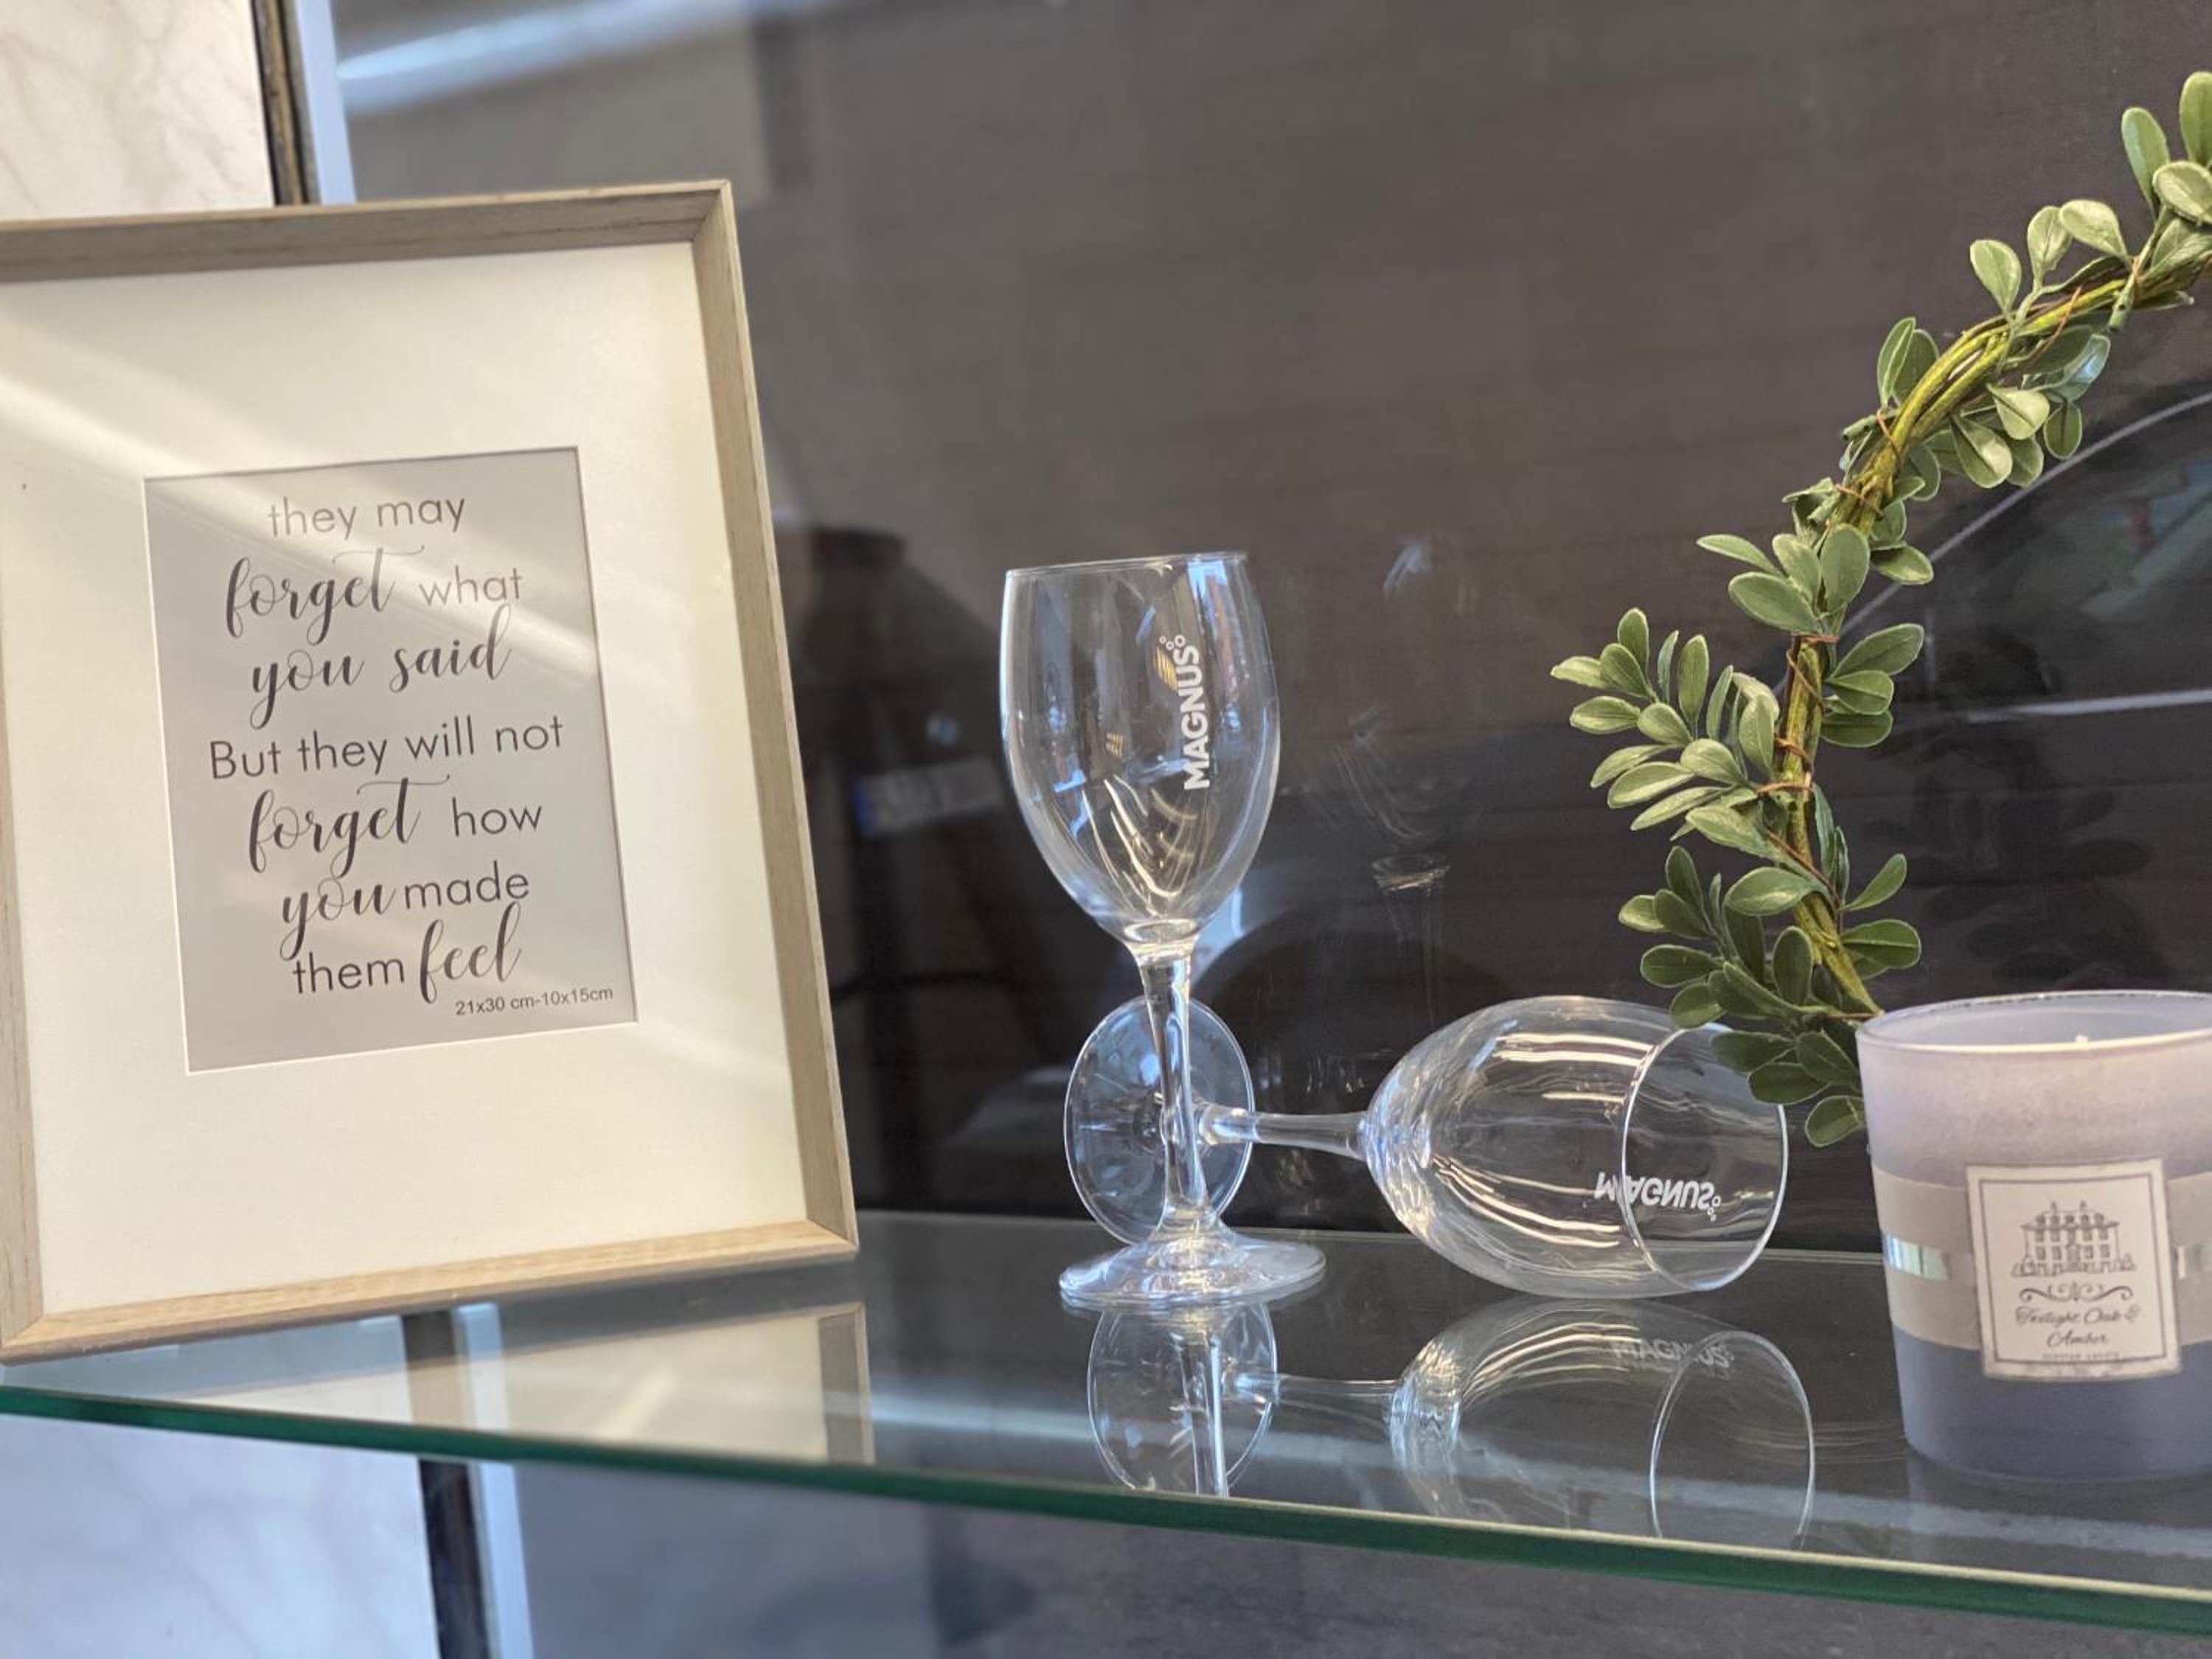 they may
forget what
you said
But they will not
forget how
you made
them feel
21x30 cm-10x15cm
MAGNUS
MAGNUS
Twilight Oak &
Amber